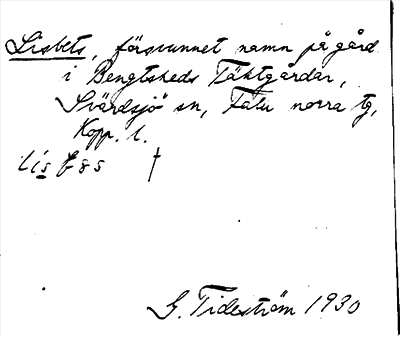 Lisbets, försvunnet namn på gård
i Bengtsheds Täktgårdar,
Svärdsjö sn, Falu norra tg,
Kopp. l.
G. Tideström 1930